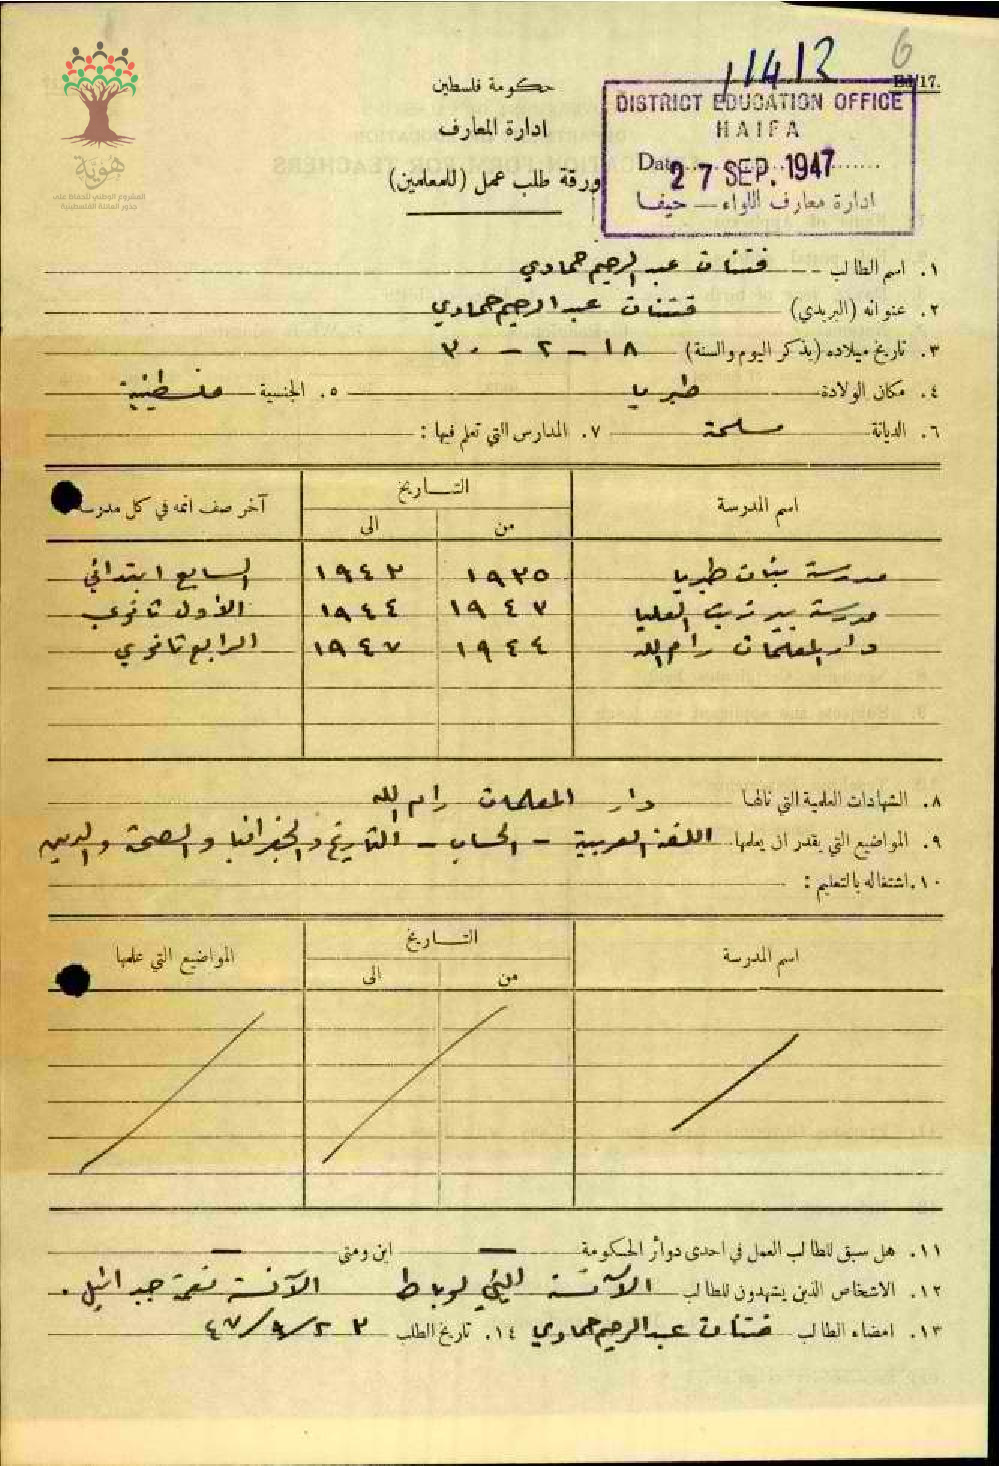 6
11412
Ed/17.
حكومة فلسطين
ادارة المعارف
ورقة طلب عمل (للمعلمين)
DISTRICT EDUCATION OFFICE
HAIFA
Date 27 SEP. 1947
ادارة معارف اللواء – حيفا
هوية
المشروع الوطني للحفاظ على
جذور العائلة الفلسطينية
١. اسم الطالب عبد الرحيم حمادي
٢. عنوانه (البريدي) عبد الرحيم حمادي
٣. تاريخ ميلاده (يذكر اليوم والسنة) ١٨ – ٢ – ٣٠
٤. مكان الولادة طبريا ٥. الجنسية فلسطينية
٦. الديانة مسلمة ٧. المدارس التي تعلم فيها :
اسم المدرسة التاريخ آخر صف اتمه في كل مدرسة
من الى
مدرسة بنات طبريا ١٩٣٥ ١٩٤٣ السابع ابتدائي
مدرسة بير زيت العليا ١٩٤٣ ١٩٤٤ الأول ثانوي
دار المعلمات رام الله ١٩٤٤ ١٩٤٧ الرابع ثانوي
٨. الشهادات العلمية التي نالها دار المعلمات رام الله
٩. المواضيع التي يقدر ان يعلمها اللغة العربية – الحساب – التاريخ والجغرافيا والصحة والدين
١٠. اشتغاله بالتعليم :
اسم المدرسة التاريخ المواضيع التي علمها
من الى
١١. هل سبق للطالب العمل في احدى دوائر الحكومة — اين ومتى —
١٢. الاشخاص الذين يشهدون للطالب الآنسة الآنسة نعمة جبرائيل .
١٣. امضاء الطالب عبد الرحيم حمادي ١٤. تاريخ الطلب ٢٣/٩/٤٧